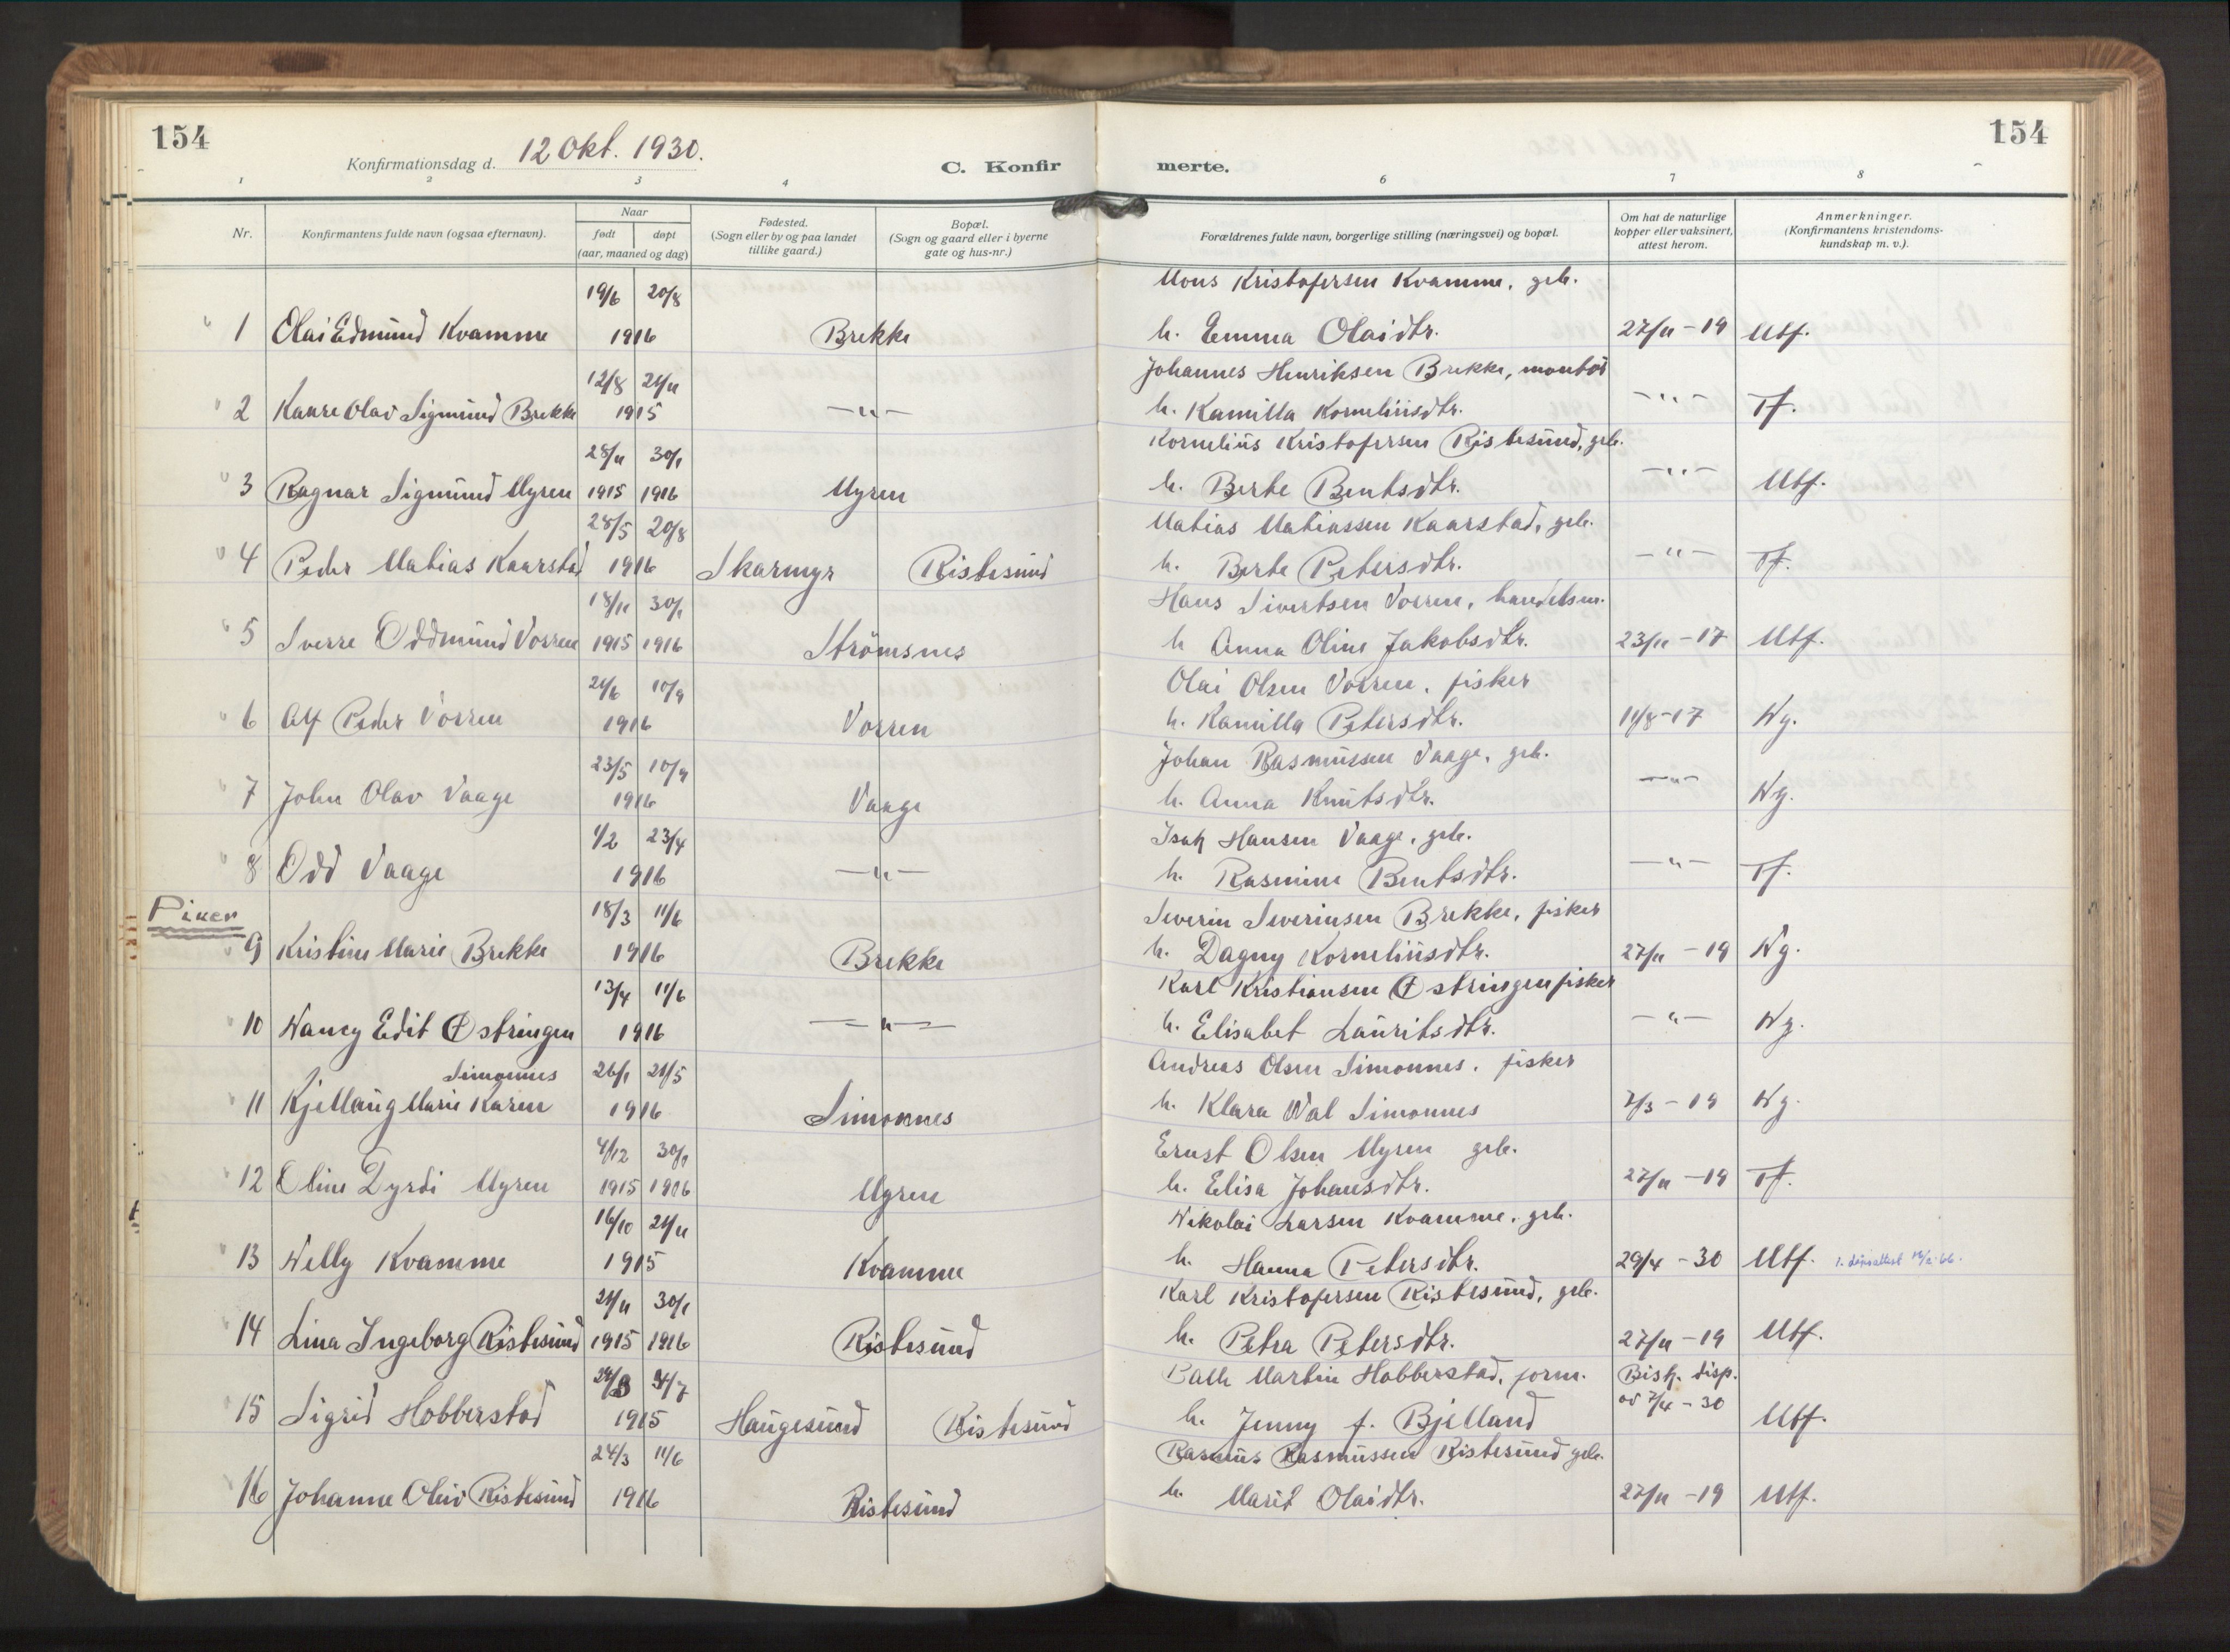 154
Konfirmationsdag d. 12 Okt. 1930.
C. Konfir
merte.
154
1 2 3 4 6 7 8
Nr.
Konfirmantens fulde navn (ogsaa efternavn).
Naar
født døpt
(aar, maaned og dag)
Fødested.
(Sogn eller by og paa landet
tillike gaard.)
Bopæl.
(Sogn og gaard eller i byerne
gate og hus-nr.)
Forældrenes fulde navn, borgerlige stilling (næringsvei) og bopæl.
Om hat de naturlige
kopper eller vaksinert,
attest herom.
Anmerkninger.
(Konfirmantens kristendoms-
kundskap m. v.).
19/6 20/8 Mons Kristofersen Kvamme, gbr.
1 Olai Edmund Kvamme 1916 Brekke h. Emma Olaidtr. 27/11 - 19 Mtf.
12/8 21/11 Johannes Henriksen Brekke, montør
2 Kaare Olav Sigmund Brekke 1915 -"- h. Kamilla Korneliusdtr. -"- Tf.
28/11 30/1 Kornelius Kristofersen Ristesund, gbr.
3 Ragnar Sigmund Myren 1915 1916 Myren h. Berte Bentsdtr. -"- Mtf.
28/5 20/8 Matias Matiassen Kaarstad, gbr.
4 Peder Matias Kaarstad 1916 Skarmyr Ristesund h. Berte Petersdtr. -"- Tf.
18/11 30/1 Hans Sivertsen Vorren, handelsm.
5 Sverre Oddmund Vorren 1915 1916 Strömsnes h Anna Oline Jakobsdtr. 23/11 - 17 Mtf.
21/6 10/9 Olai Olsen Vorren, fisker
6 Alf Peder Vorren 1916 Vorren h. Kamilla Petersdtr. 11/8 - 17 Ng.
23/5 10/9 Johan Rasmussen Vaage, gbr.
7 John Olav Vaage 1916 Vaage h. Anna Knutsdtr. -"- Ng.
1/2 23/4 Isak Hansen Vaage, gbr.
8 Odd Vaage 1916 -"- h. Rasmine Bentsdtr. -"- Tf.
Piker
18/3 11/6 Severin Severinsen Brekke, fisker
9 Kristine Marie Brekke 1916 Brekke h. Dagny Korneliusdtr. 27/11 - 19 Ng.
13/4 11/6 Karl Kristiansen Østringen fisker
10 Nancy Edit Østringen 1916 -"- h. Elisabet Lauritsdtr. -"- Ng.
Simonnes 26/1 21/5 Andreas Olsen Simonnes, fisker
11 Kjellaug Marie Karen 1916 Simonnes h. Klara Wal Simonnes 7/3 - 19 Ng.
4/12 30/1 Ernst Olsen Myren gbr.
12 Oline Dyrdi Myren 1915 1916 Myren h. Elisa Johansdtr. 27/11 - 19 Tf.
16/10 21/11 Nikolai Larsen Kvamme, gbr.
13 Nelly Kvamme 1915 Kvamme h. Hanna Petersdtr. 29/4 - 30 Mtf.
21/11 30/1 Karl Kristofersen Ristesund, gbr.
14 Lina Ingeborg Ristesund 1915 1916 Ristesund h. Petra Petersdtr. 27/11 - 19 Mtf.
Martin Hobberstad, form. Bisk. disp.
15 Sigrid Hobberstad 1915 Haugesund Ristesund h. Jenny f. Bjelland av 7/4 - 30 Mtf.
24/3 11/6 Rasmus Rasmussen Ristesund gbr.
16 Johanne Oliv Ristesund 1916 Ristesund h. Marit Olaidtr. 27/11 - 19 Mtf.